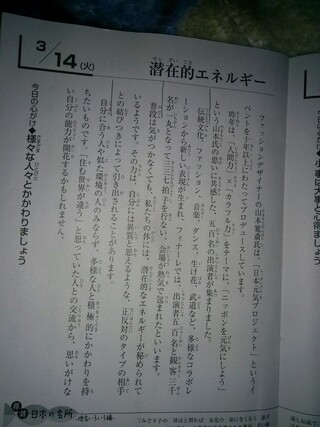 3/14(火)
潜在的エネルギー
ファッションデザイナーの山本寛斎氏は、「日本元気プロジェクト」というイ
ベントを十年以上にわたってプロデュースしています。
昨年は、「人間力」「カラフル力」をテーマに、「ニッポンを元気にしよう」
という山本氏の思いに共感した、五百名の出演者が集まりました。
伝統文化、ファッション、音楽、ダンス、生け花、武道など、多様なコラボレ
ーションから新しい表現が生まれ、フィナーレでは、出演者五百名と観客三千
名が一丸となって三三七拍子を行ない、会場が熱気で包まれたといいます。
普段は気がつかなくても、私たちの体には、潜在的なエネルギーが秘められて
いるようです。その力は、自分には異質と思えるような、正反対のタイプの相手
との結びつきによって引き出されることがあります。
自分に合う人や似た環境の人のみならず、多様な人と積極的にかかわりを持
ちたいものです。「住む世界が違う」と思っていた人との交流から、思いがけな
い自分の能力が開花するかもしれません。
今日の心がけ◆様々な人々とかかわりましょう
日本の名所